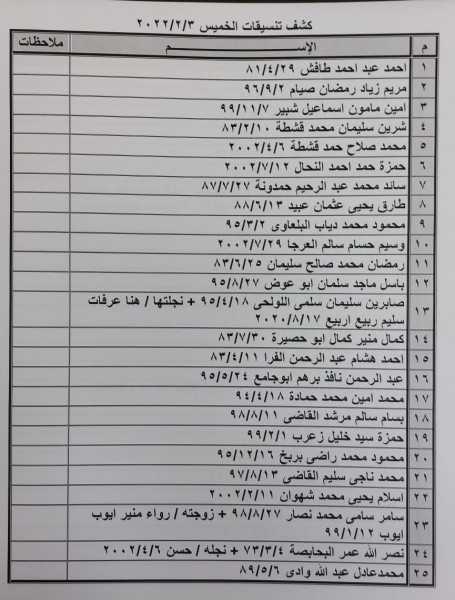 كشف تنسيقات الخميس ٢٠٢٢/٢/٣
م الإســـــم ملاحظات
١ احمد عبد احمد طافش ٨١/٤/٢٩
٢ مريم زياد رمضان صيام ٩٦/٩/٢
٣ امين مامون اسماعيل شبير ٩٩/١١/٧
٤ شرين سليمان محمد قشطة ٨٣/٢/١٠
٥ محمد صلاح حمد قشطة ٢٠٠٢/٤/٦
٦ حمزة حمد احمد النحال ٢٠٠٢/٧/١٢
٧ سائد محمد عبد الرحيم حمدونة ٨٧/٧/٢٧
٨ طارق يحيى عثمان عبيد ٨٨/٦/١٣
٩ محمود محمد دياب البلعاوى ٩٥/٣/٢
١٠ وسيم حسام سالم العرجا ٢٠٠٢/٧/٢٩
١١ رمضان محمد صالح سليمان ٨٣/٦/٢٥
١٢ باسل ماجد سلمان ابو عوض ٩٥/٨/٢٧
١٣ صابرين سليمان سلمى اللولحى ٩٥/٤/١٨ + نجلتها / هنا عرفات
سليم ربيع اربيع ٢٠٢٠/٨/١٧
١٤ كمال منير كمال ابو حصيرة ٨٣/٧/٣٠
١٥ احمد هشام عبد الرحمن الفرا ٨٣/٤/١١
١٦ عبد الرحمن نافذ برهم ابوجامع ٩٥/٥/٢٤
١٧ محمد امين محمد حمادة ٩٤/٤/١٨
١٨ بسام سالم مرشد القاضى ٩٨/٨/١١
١٩ حمزة سيد خليل زعرب ٩٩/٢/١
٢٠ محمود محمد راضى بربخ ٩٥/١٢/١٦
٢١ محمد ناجى سليم القاضى ٩٧/٨/١٣
٢٢ اسلام يحيى محمد شهوان ٢٠٠٢/٢/١١
٢٣ سامر سامى محمد نصار ٩٨/٨/٢٧ + زوجته / رواء منير ايوب
ايوب ٩٩/١/١٢
٢٤ نصر الله عمر البحابصة ٧٣/٣/٤ + نجله / حسن ٢٠٠٢/٤/٦
٢٥ محمدعادل عبد الله وادى ٨٩/٥/٦